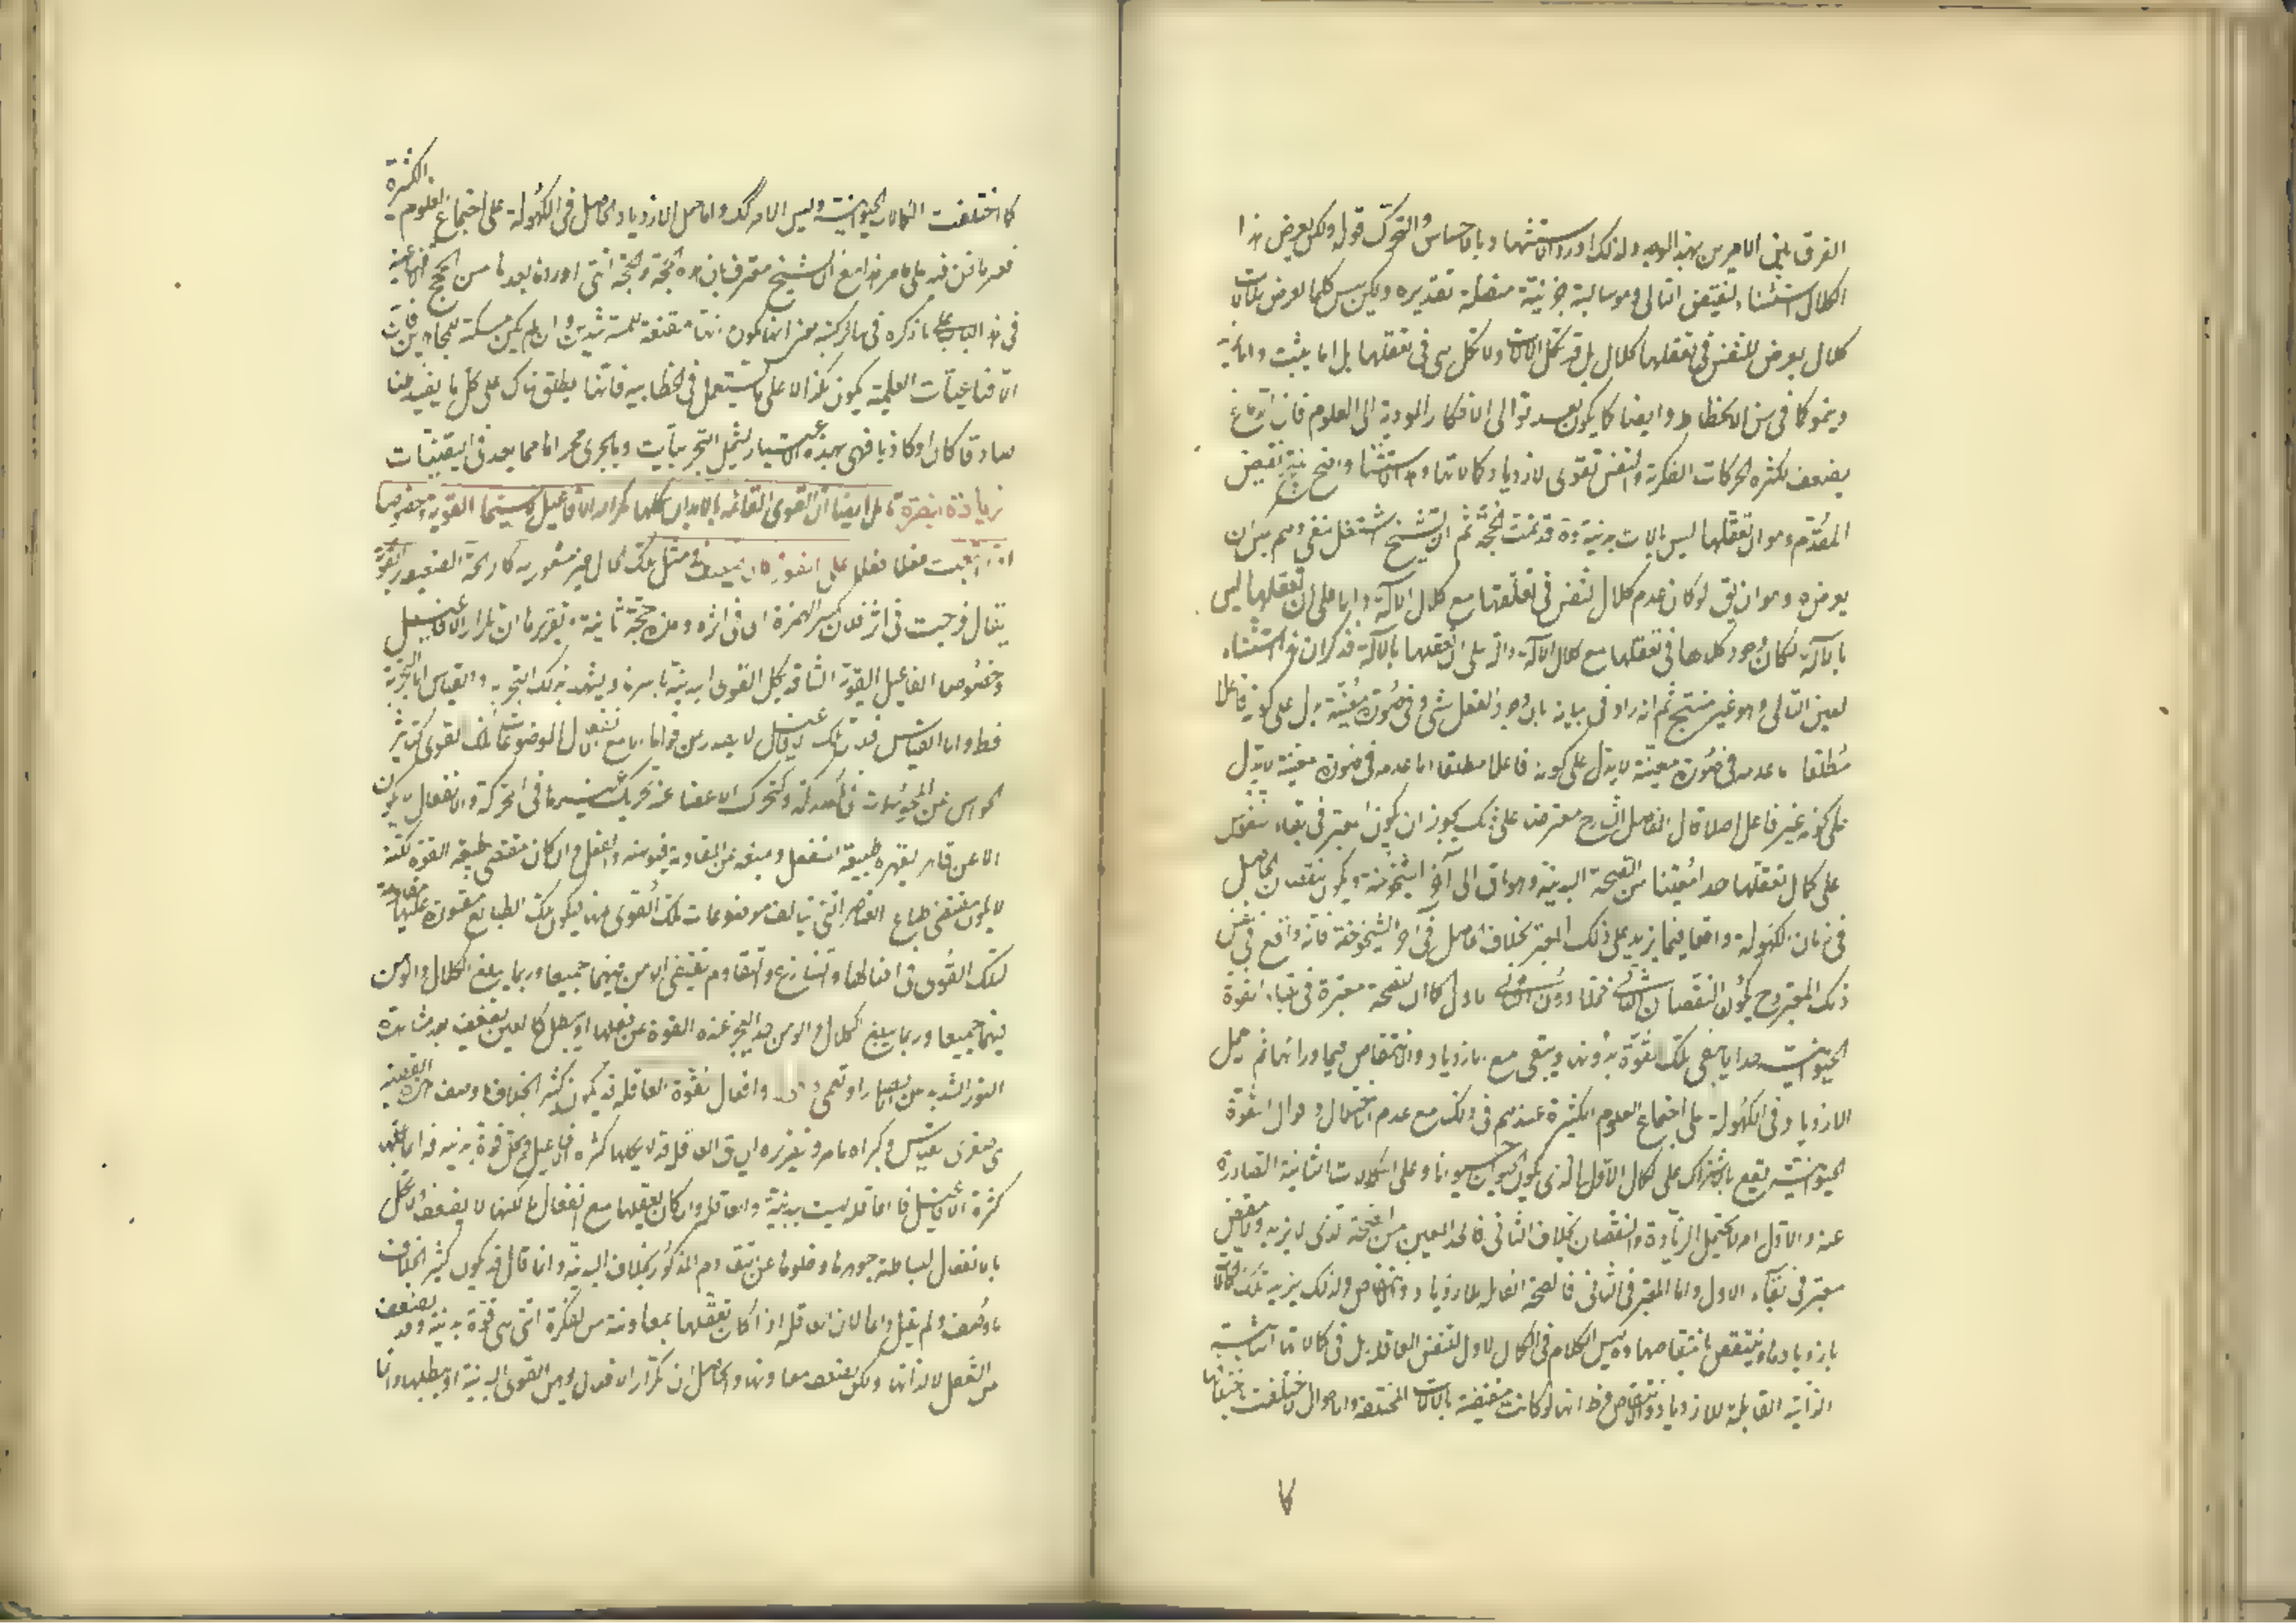 الفرق بين الامرين بهذا الوجه ولذلك اورد استثنائها وبالاحساس والتحرك قوله ولكن يعرض هذا
الكلال استثناء لنقيض التالى وهو سالبة جزئية متصلة تقديره ولكن ليس كلما يعرض للآلات
كلال يعرض للنفس فى تعقلها كلال بل قد تكل الآلات ولا تكل هى فى تعقلها بل اما يثبت واما يزيد
وينمو كما فى سن الانحطاط وايضا كما يكون بعد توالى الافكار المودية الى العلوم فان الدماغ
يضعف بكثرة الحركات الفكرية والنفس تقوى لازدياد كمالاتها وهذا الاستثناء وانتج نقيض
المقدم وهو ان تعقلها ليس بالات بدنية وقد تمت الحجة ثم ان الشيخ اشتغل بنفى وهم يمكن ان
يعرض وهو ان يق لو كان عدم كلال النفس فى تعقلها مع كلال الآلة دالا على ان تعقلها ليس
بالآلة لكان وجود كلالها فى تعقلها مع كلال الآلة دالا على ان تعقلها بالآلة فذكر ان هذا استثناء
لعين التالى وهو غير منتج ثم انه زاد فى بيانه بان وجود الفعل لشى فى صورة معينة يدل على كونه فاعلا
مطلقا اما عدمه فى صورة معينة لا يدل على كونه فاعلا مطلقا اما عدمه فى صورة معينة لا يدل
على كونه غير فاعل اصلا قال الفاضل الشارح معترضا على ذلك يجوز ان يكون المعتبر فى بقاء النفوس
على كمال تعقلها حدا معينا من الصحة البدنية وهو باق الى آخر الشيخوخة ويكون النقصان الحاصل
فى زمان الكهولة واقعا فيما يزيد على ذلك المعتبر بخلاف الحاصل فى آخر الشيخوخة فانه واقع فى نفس
ذلك المعتبر وح يكون النقصان الثانى مخلا دون الاول كما ان للصحة معتبرة فى بقاء القوة
الحيوانية حدا ما تبقى تلك القوة بدونه وتبقى مع الازدياد والانتقاص فيما وراءها ثم حمل
الازدياد فى الكهولة على اجتماع العلوم الكثيرة عندهم فى ذلك مع عدم الاختلال وقوال القوة
الحيوانية يقع بالاشتراك على الكمال الاول الذى يكون الحيوان حيوانا وعلى الكمالات الثانية الصادرة
عنه والاول امر لا يحتمل الزيادة والنقصان بخلاف الثانى فالحد المعين من الصحة الذى لا يزيد ولا ينقص
معتبر فى بقاء الاول واما المعتبر فى الثانى فالصحة القابلة للازدياد والانتقاص ولذلك يزيد تلك الكمالات
بازديادها وينتقص بانتقاصها وليس الكلام فى الكمال الاول للنفس العاقلة بل فى كمالاتها الثانية
الذاتية القابلة للازدياد والانتقاص فظ انها لو كانت مقتضية بالآلات المختلفة والاحوال لاختلفت باختلافها
كما اختلفت الكمالات الحيوانية وليس الامر كذلك واما حمل الازدياد الحاصل فى الكهولة على اجتماع العلوم الكثيرة
فغير ما نحن فيه على ما مر هذا مع ان الشيخ معترف بان هذه الحجة والحجة التى اوردها بعدها من الحجج الاقناعية
فى هذا الباب على ما ذكره فى سائر كتبه يعنى انها تكون مقنعة للمسترشدين وان لم يكن مسكتة للمجادلين فان
الاقناعيات العلمية يكون هكذا لا على ما يستعمل فى الخطابيه فانها يطلق هناك على كل ما يفيد ظنا
صادقا كان او كاذبا فهى بهذا الاعتبار تشمل التجربيات وما يجرى مجراها مما يعد فى اليقينيات
زيادة تبصرة تأمل ايضا ان القوى القائمة بالابدان يكلها تكرار الافاعيل لا سيما القوية وخصوصا
اذا اتبعت فعلا فعلا على الفور وكان الضعيف فى مثل تلك الحال غير مشعور به كالرائحة الضعيفة اثر القوية
يقال خرجت فى اثر فلان بكسر الهمزة اى فى اثره وهذه حجة ثانية وتقريرها ان تكرار الافاعيل
وخصوصا الفاعيل القوية الشاقة يكل القوى البدنية باسرها ويشهد بذلك التجربه والقياس اما التجربة
فظ واما القياس فلان تلك الافاعيل لا يصدر من قواها الا مع انفعال الموضوعات تلك القوى كتأثر
الحواس عن المحسوسات فى المدركة وكتحرك الاعضاء عند تحريك غيرها فى المحركة والانفعال لا يكون
الا عن قاهر يقهر طبيعة المنفعل ويمنعه عن المقاومة فيوهنه والفعل وان كان مقتضى طبيعة القوة لكنه
لا يكون مقتضى طبائع العناصر التى تتألف موضوعات تلك القوى عنها فيكون تلك الطبائع مقسورة عليها مقاومة
لتلك القوى فى افعالها والتنازع والتقاوم يقتضى الوهن فيهما جميعا وربما يبلغ الكلال والوهن
فيهما جميعا وربما يبلغ الكلال والوهن حدا يعجز عنده القوة عن فعلها او يبطل كالعين تضعف بعد مشاهدة
النور الشديد عن الابصار او تعمى وافعال القوة العاقلة قد يكون كثيرا بخلاف ما وصف هذه القضية
هى صغرى القياس وكبراه ما مر وتقريره ان يق العاقلة قد لا يكلها كثرة الافاعيل وكل قوة بدنية فدائما يكلها
كثرة الافاعيل فالعاقلة ليست بدنية والعاقلة وان كان تعقلها مع انفعال ما لكنها لا يضعف ولا يكل
بالانفعال لبساطة جوهرها وخلوها عن التقاوم المذكور بخلاف البدنية وانما قال قد يكون كثيرا بخلاف
ما وصف ولم يقل دائما لان العاقلة اذا كان تعقلها بمعاونة من الفكرة التى هى قوة بدنية وقد يضعف
عن الفعل لا لذاتها ولكن بضعف معاونها والحاصل ان تكرار الافعال يوهن القوى البدنية او يبطلها دائما